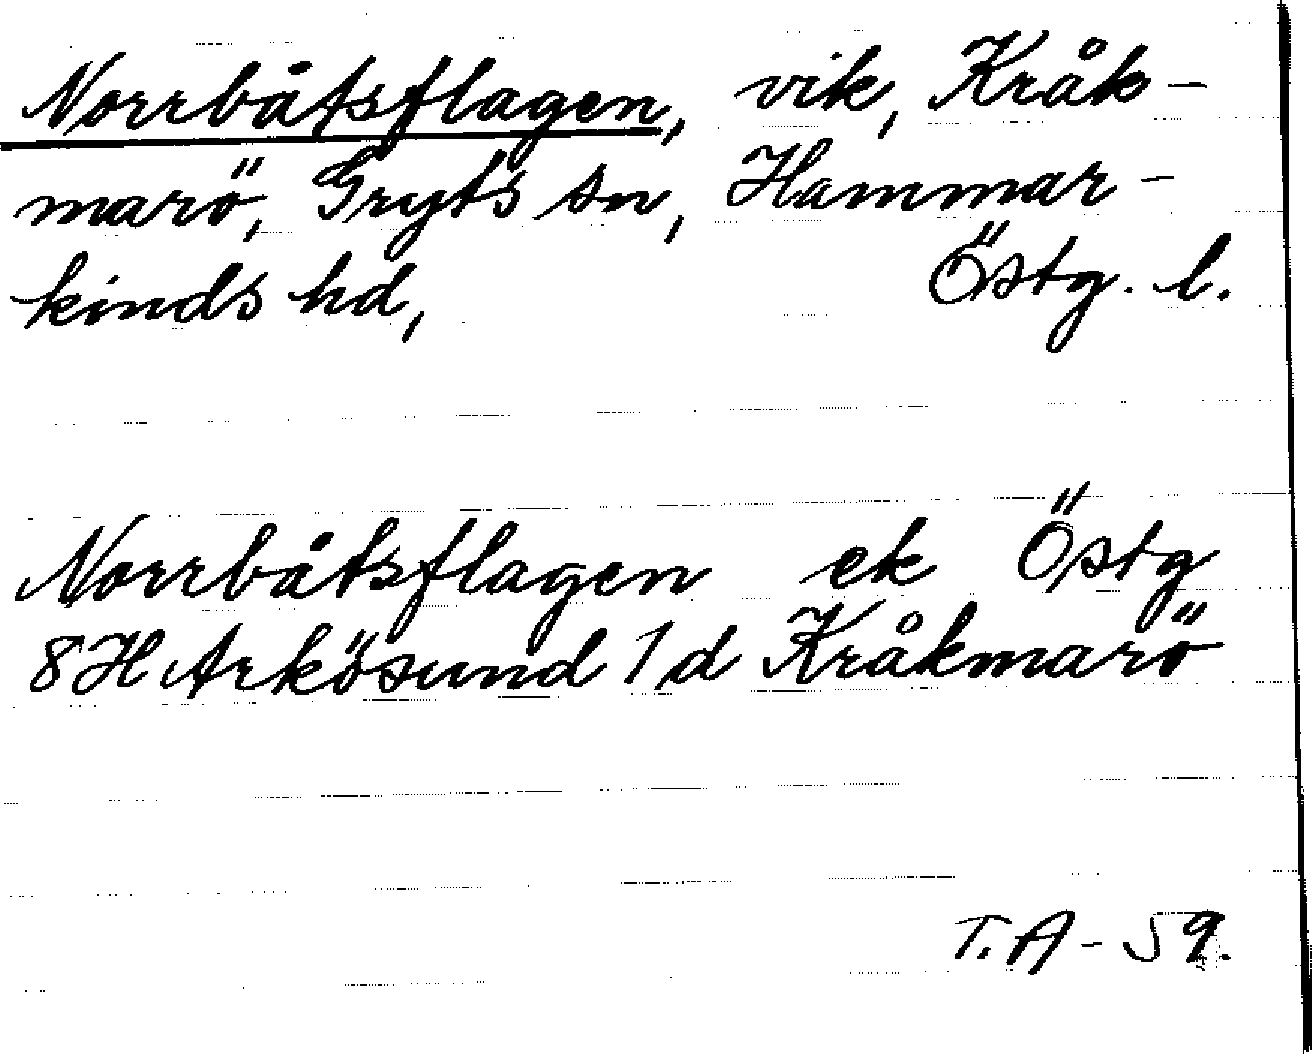 Norrbåtsflagen, vik, Kråk-
marö, Gryts sn, Hammar-
kinds hd, Östg. l.
Norrbåtsflagen ek Östg
8H Arkösund 1d Kråkmarö
T.A-59.